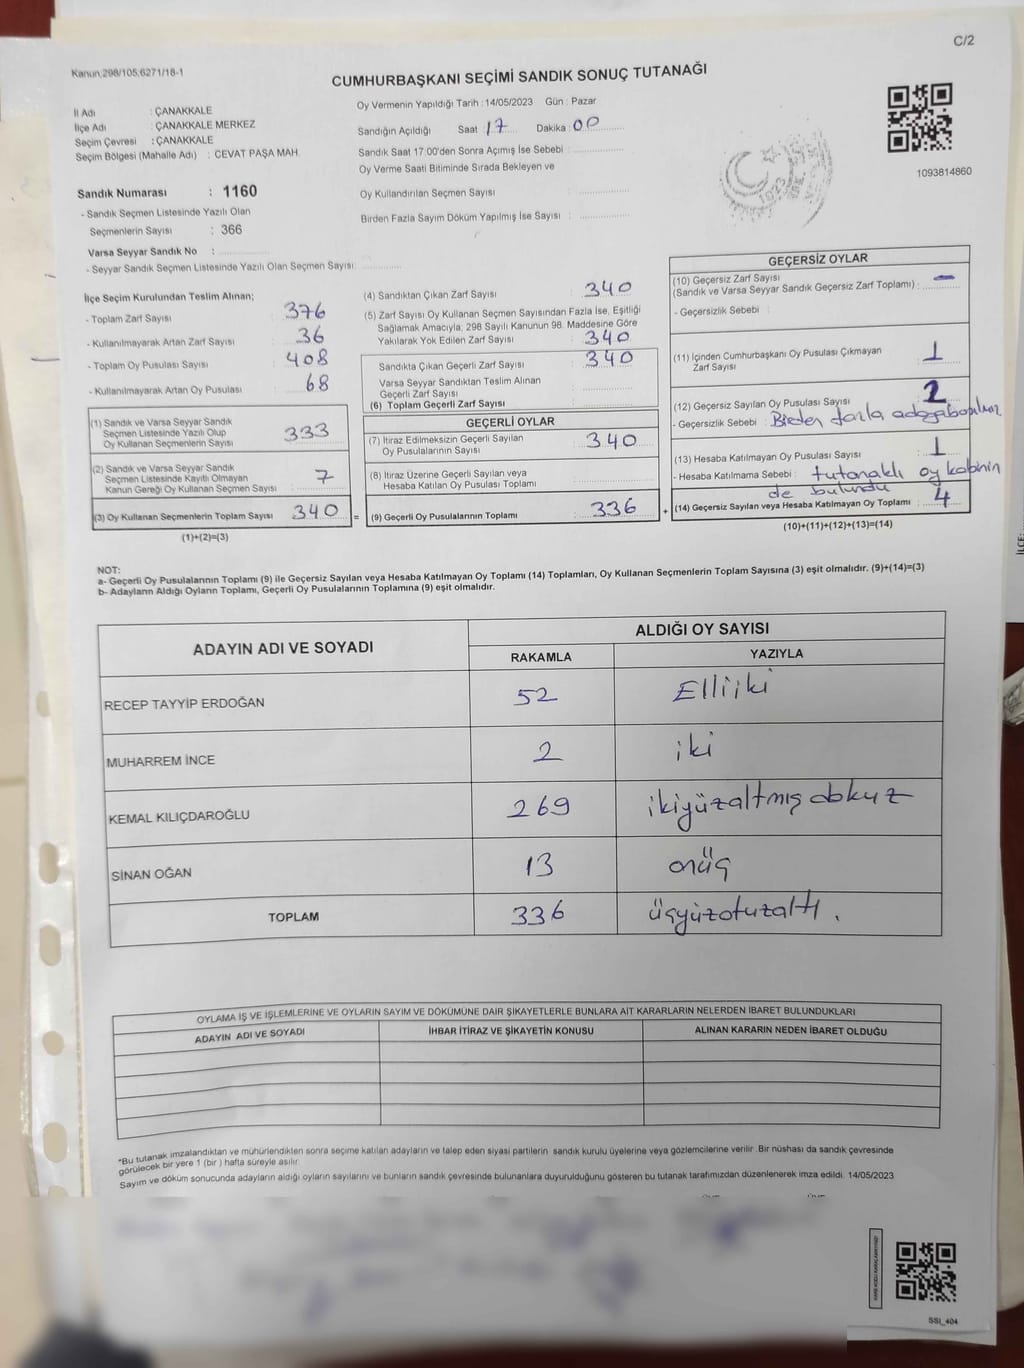 C/2
Kanun:298/105,6271/18-1
CUMHURBAŞKANI SEÇİMİ SANDIK SONUÇ TUTANAĞI
İl Adı : ÇANAKKALE
İlçe Adı : ÇANAKKALE MERKEZ
Seçim Çevresi : ÇANAKKALE
Seçim Bölgesi (Mahalle Adı) : CEVAT PAŞA MAH.
Sandık Numarası : 1160
- Sandık Seçmen Listesinde Yazılı Olan
Seçmenlerin Sayısı : 366
Varsa Seyyar Sandık No :
- Seyyar Sandık Seçmen Listesinde Yazılı Olan Seçmen Sayısı:
Oy Vermenin Yapıldığı Tarih : 14/05/2023 Gün : Pazar
Sandığın Açıldığı Saat : 17 Dakika : 00
Sandık Saat 17:00'den Sonra Açımış İse Sebebi :
Oy Verme Saati Bitiminde Sırada Bekleyen ve
Oy Kullandırılan Seçmen Sayısı :
Birden Fazla Sayım Döküm Yapılmış İse Sayısı :
1923
1093814860
İlçe Seçim Kurulundan Teslim Alınan;
- Toplam Zarf Sayısı : 376
- Kullanılmayarak Artan Zarf Sayısı : 36
- Toplam Oy Pusulası Sayısı : 408
- Kullanılmayarak Artan Oy Pusulası : 68
(1) Sandık ve Varsa Seyyar Sandık
Seçmen Listesinde Yazılı Olup
Oy Kullanan Seçmenlerin Sayısı : 333
(2) Sandık ve Varsa Seyyar Sandık
Seçmen Listesinde Kayıtlı Olmayan
Kanun Gereği Oy Kullanan Seçmen Sayısı : 7
(3) Oy Kullanan Seçmenlerin Toplam Sayısı : 340 =
(1)+(2)=(3)
(4) Sandıktan Çıkan Zarf Sayısı : 340
(5) Zarf Sayısı Oy Kullanan Seçmen Sayısından Fazla İse, Eşitliği
Sağlamak Amacıyla, 298 Sayılı Kanunun 98. Maddesine Göre
Yakılarak Yok Edilen Zarf Sayısı : 340
Sandıkta Çıkan Geçerli Zarf Sayısı : 340
Varsa Seyyar Sandıktan Teslim Alınan
Geçerli Zarf Sayısı :
(6) Toplam Geçerli Zarf Sayısı :
GEÇERLİ OYLAR
(7) İtiraz Edilmeksizin Geçerli Sayılan
Oy Pusulalarının Sayısı : 340
(8) İtiraz Üzerine Geçerli Sayılan veya
Hesaba Katılan Oy Pusulası Toplamı :
(9) Geçerli Oy Pusulalarının Toplamı : 336 +
GEÇERSİZ OYLAR
(10) Geçersiz Zarf Sayısı
(Sandık ve Varsa Seyyar Sandık Geçersiz Zarf Toplamı) : -
- Geçersizlik Sebebi :
(11) İçinden Cumhurbaşkanı Oy Pusulası Çıkmayan
Zarf Sayısı : 1
(12) Geçersiz Sayılan Oy Pusulası Sayısı : 2
- Geçersizlik Sebebi : Birden fazla adaya
(13) Hesaba Katılmayan Oy Pusulası Sayısı : 1
- Hesaba Katılmama Sebebi : tutanaklı oy kabinin
de bulundu
(14) Geçersiz Sayılan veya Hesaba Katılmayan Oy Toplamı : 4
(10)+(11)+(12)+(13)=(14)
NOT:
a- Geçerli Oy Pusulalarının Toplamı (9) ile Geçersiz Sayılan veya Hesaba Katılmayan Oy Toplamı (14) Toplamları, Oy Kullanan Seçmenlerin Toplam Sayısına (3) eşit olmalıdır. (9)+(14)=(3)
b- Adayların Aldığı Oyların Toplamı, Geçerli Oy Pusulalarının Toplamına (9) eşit olmalıdır.
ADAYIN ADI VE SOYADI ALDIĞI OY SAYISI
RAKAMLA YAZIYLA
RECEP TAYYİP ERDOĞAN 52 Elliiki
MUHARREM İNCE 2 iki
KEMAL KILIÇDAROĞLU 269 ikiyüzaltmış dokuz
SİNAN OĞAN 13 onüç
TOPLAM 336 üçyüzotuzaltı.
OYLAMA İŞ VE İŞLEMLERİNE VE OYLARIN SAYIM VE DÖKÜMÜNE DAİR ŞİKAYETLERLE BUNLARA AİT KARARLARIN NELERDEN İBARET BULUNDUKLARI
ADAYIN ADI VE SOYADI İHBAR İTİRAZ VE ŞİKAYETİN KONUSU ALINAN KARARIN NEDEN İBARET OLDUĞU
*Bu tutanak imzalandıktan ve mühürlendikten sonra seçime katılan adayların ve talep eden siyasi partilerin sandık kurulu üyelerine veya gözlemcilerine verilir. Bir nüshası da sandık çevresinde
görülecek bir yere 1 (bir) hafta süreyle asılır.
Sayım ve döküm sonucunda adayların aldığı oyların sayılarını ve bunların sandık çevresinde bulunanlara duyurulduğunu gösteren bu tutanak tarafımızdan düzenlenerek imza edildi. 14/05/2023
SSI_404